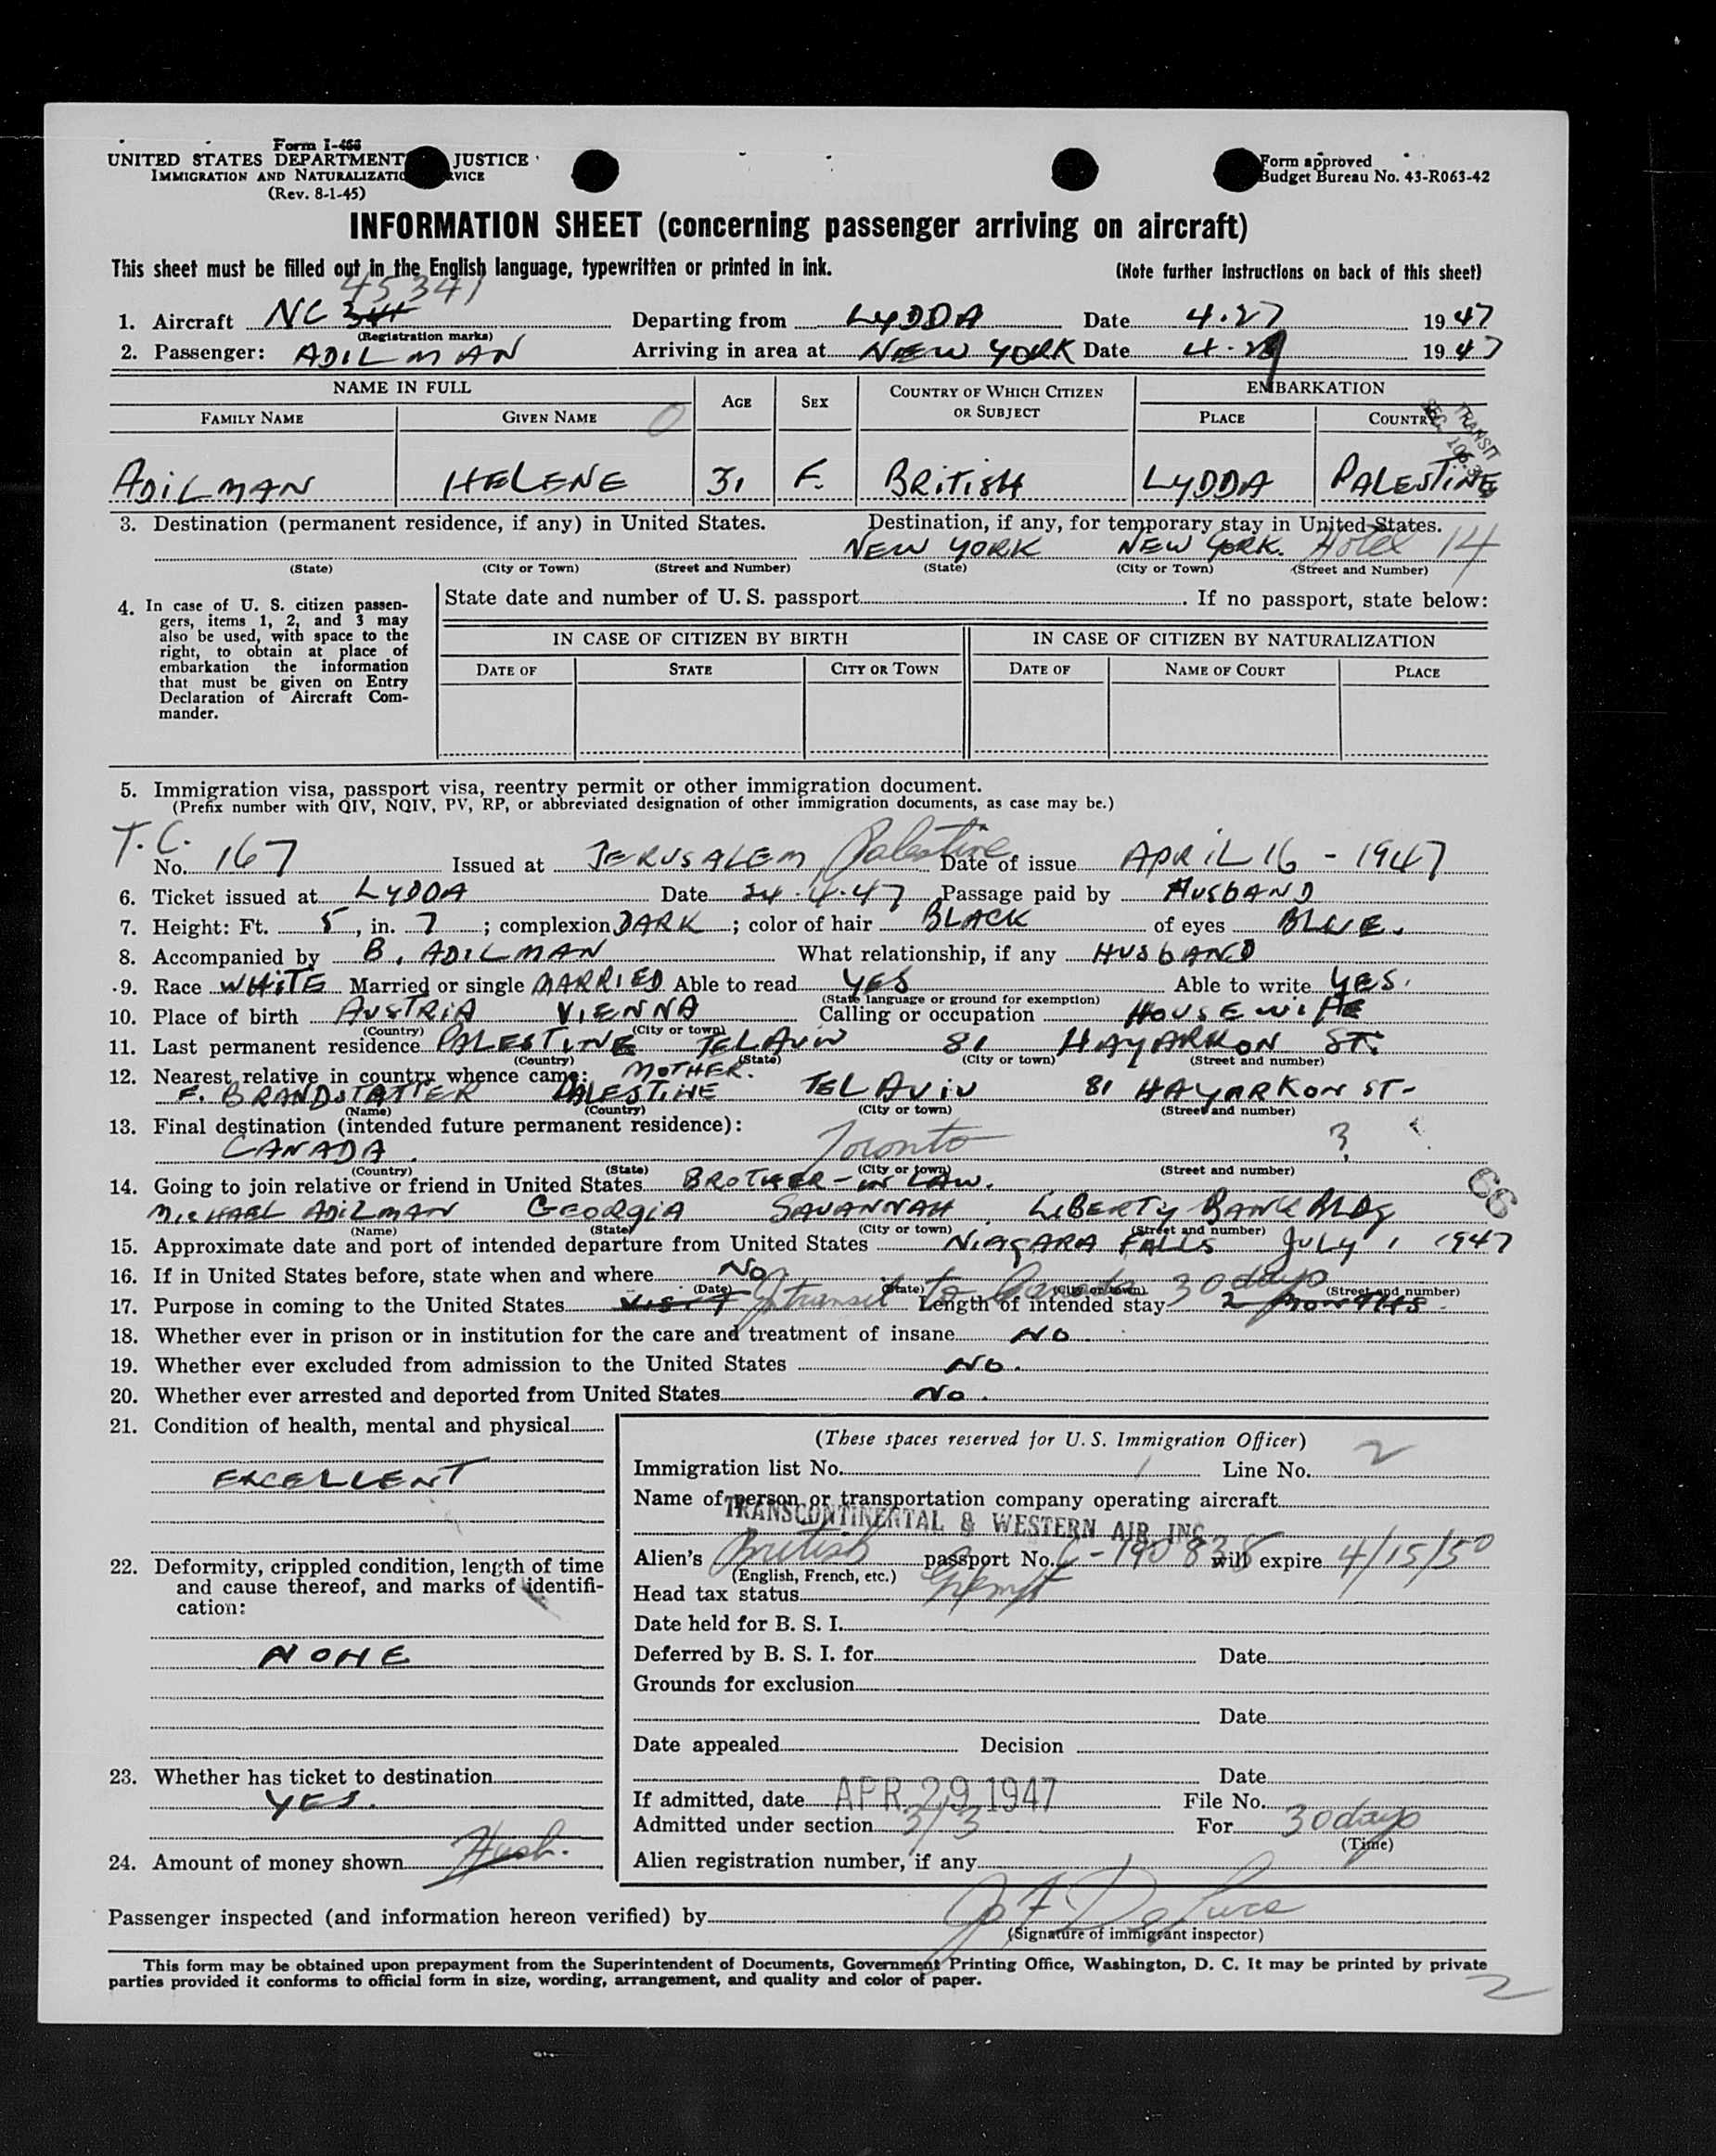 Form I-466
UNITED STATES DEPARTMENT JUSTICE
IMMIGRATION AND NATURALIZATIO RVICE
(Rev. 8-1-45)
Form approved
Budget Bureau No. 43-R063-42
INFORMATION SHEET (concerning passenger arriving on aircraft)
This sheet must be filled out in the English language, typewritten or printed in ink. (Note further instructions on back of this sheet)
45341
1. Aircraft NC Departing from LYDDA Date 4.27 1947
(Registration marks)
2. Passenger: ADILMAN Arriving in area at NEW YORK Date 4.29 1947
NAME IN FULL AGE SEX COUNTRY OF WHICH CITIZEN OR SUBJECT EMBARKATION
FAMILY NAME GIVEN NAME PLACE COUNTRY
TRANSIT
ADILMAN HELENE 31 F. BRITISH LYDDA PALESTINE
3. Destination (permanent residence, if any) in United States. Destination, if any, for temporary stay in United States.
NEW YORK NEW YORK. Hotel 14
(State) (City or Town) (Street and Number) (State) (City or Town) (Street and Number)
4. In case of U. S. citizen passen-
gers, items 1, 2, and 3 may
also be used, with space to the
right, to obtain at place of
embarkation the information
that must be given on Entry
Declaration of Aircraft Com-
mander.
State date and number of U. S. passport. If no passport, state below:
IN CASE OF CITIZEN BY BIRTH IN CASE OF CITIZEN BY NATURALIZATION
DATE OF STATE CITY OR TOWN DATE OF NAME OF COURT PLACE
5. Immigration visa, passport visa, reentry permit or other immigration document.
(Prefix number with QIV, NQIV, PV, RP, or abbreviated designation of other immigration documents, as case may be.)
T.C.
No. 167 Issued at JERUSALEM Palestine Date of issue APRIL 16 - 1947
6. Ticket issued at LYDDA Date 24.4.47 Passage paid by HUSBAND
7. Height: Ft. 5, in. 7; complexion DARK; color of hair BLACK of eyes BLUE.
8. Accompanied by B. ADILMAN What relationship, if any HUSBAND
9. Race WHITE Married or single MARRIED Able to read YES Able to write YES.
(State language or ground for exemption)
10. Place of birth AUSTRIA VIENNA Calling or occupation HOUSEWIFE
(Country) (City or town)
11. Last permanent residence PALESTINE TELAVIV 81 HAYARKON ST.
(Country) (State) (City or town) (Street and number)
12. Nearest relative in country whence came: MOTHER.
F. BRANDSTATTER PALESTINE TEL AVIV 81 HAYARKON ST-
(Name) (Country) (City or town) (Street and number)
13. Final destination (intended future permanent residence):
CANADA Toronto ?
(Country) (State) (City or town) (Street and number)
66
14. Going to join relative or friend in United States BROTHER-IN LAW.
MICHAEL ADILMAN GEORGIA SAVANNAH LIBERTY BANK BLDG
(Name) (State) (City or town) (Street and number)
15. Approximate date and port of intended departure from United States NIAGARA FALLS JULY 1 1947
16. If in United States before, state when and where No
(Date) (State) (City or town) (Street and number)
17. Purpose in coming to the United States VISIT Intransit to Canada Length of intended stay 30 days 2 MONTHS
18. Whether ever in prison or in institution for the care and treatment of insane NO
19. Whether ever excluded from admission to the United States NO.
20. Whether ever arrested and deported from United States NO.
21. Condition of health, mental and physical
EXCELLENT
22. Deformity, crippled condition, length of time
and cause thereof, and marks of identifi-
cation:
NONE
23. Whether has ticket to destination
YES.
24. Amount of money shown Husb.
(These spaces reserved for U. S. Immigration Officer)
Immigration list No. 1 Line No. 2
Name of person or transportation company operating aircraft
TRANSCONTINENTAL & WESTERN AIR, INC
Alien's British passport No. C-190838 will expire 4/15/50
(English, French, etc.)
Head tax status Exempt
Date held for B. S. I.
Deferred by B. S. I. for Date
Grounds for exclusion
Date
Date appealed Decision
Date
If admitted, date APR 29 1947 File No.
Admitted under section 3/3 For 30 days
(Time)
Alien registration number, if any
Passenger inspected (and information hereon verified) by
(Signature of immigrant inspector)
This form may be obtained upon prepayment from the Superintendent of Documents, Government Printing Office, Washington, D. C. It may be printed by private
parties provided it conforms to official form in size, wording, arrangement, and quality and color of paper.
2